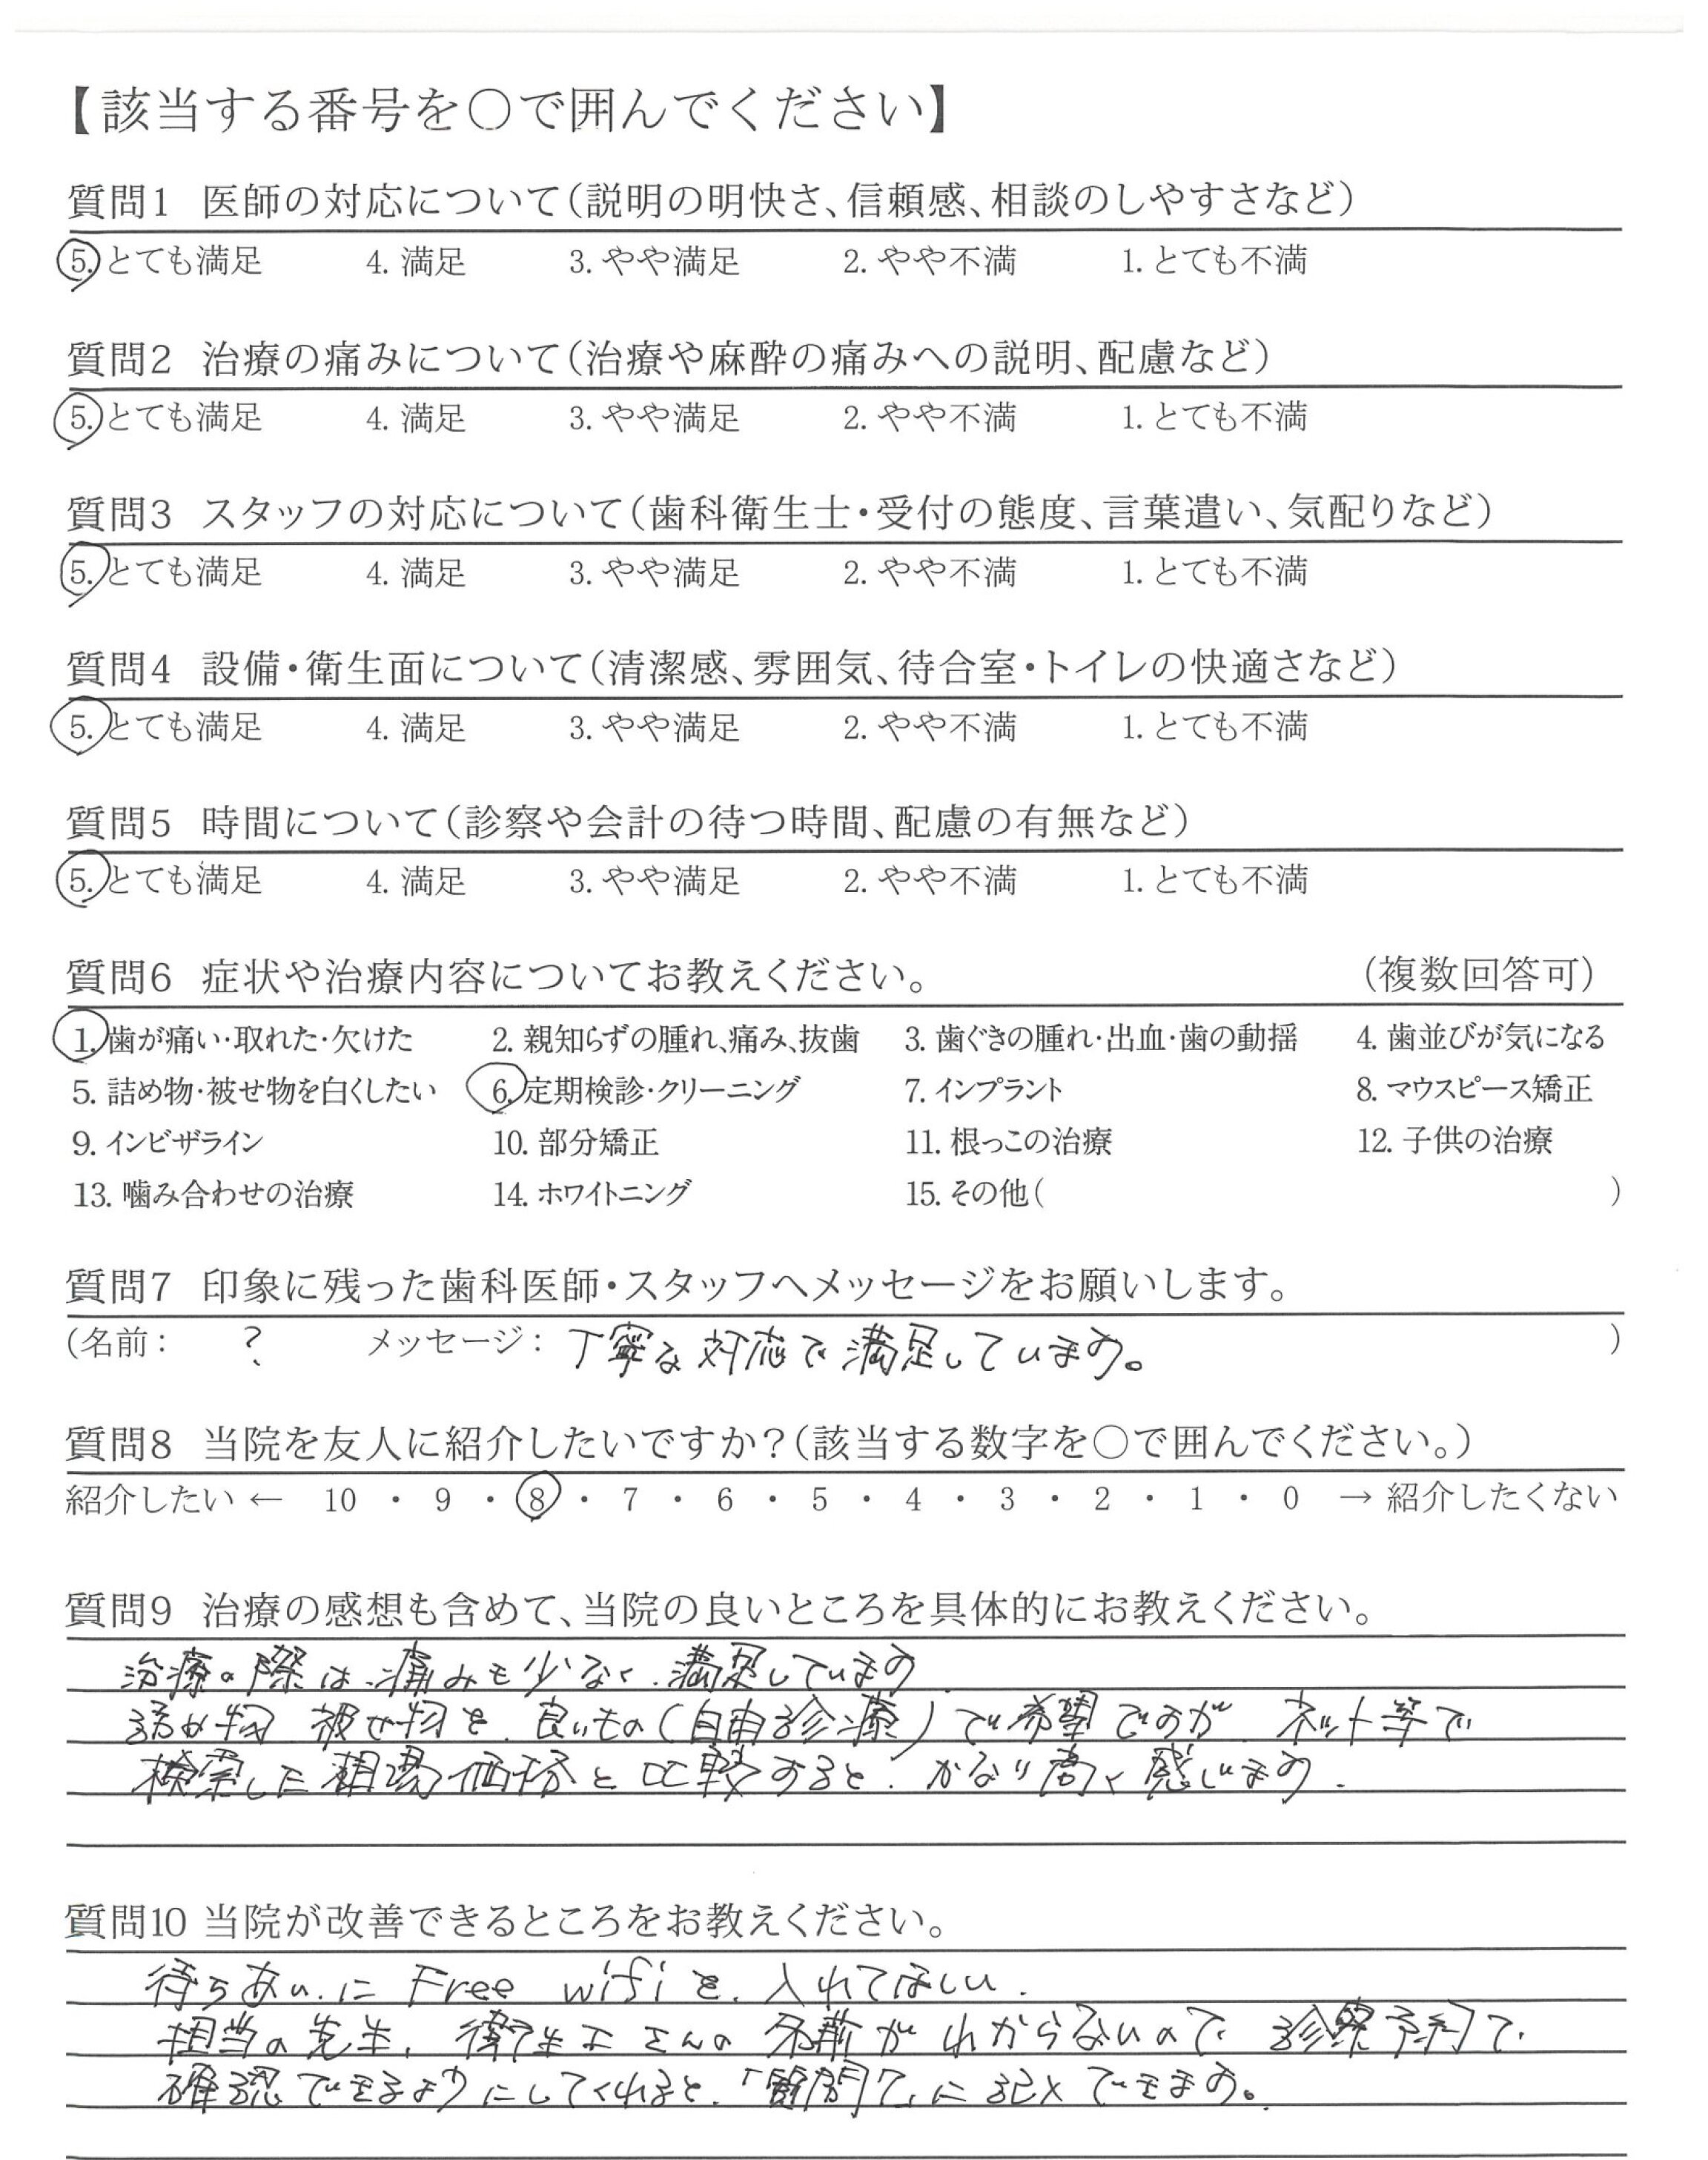 【該当する番号を○で囲んでください】
質問1 医師の対応について(説明の明快さ、信頼感、相談のしやすさなど)
5. とても満足 4. 満足 3. やや満足 2. やや不満 1. とても不満
質問2 治療の痛みについて(治療や麻酔の痛みへの説明、配慮など)
5. とても満足 4. 満足 3. やや満足 2. やや不満 1. とても不満
質問3 スタッフの対応について(歯科衛生士・受付の態度、言葉遣い、気配りなど)
5. とても満足 4. 満足 3. やや満足 2. やや不満 1. とても不満
質問4 設備・衛生面について(清潔感、雰囲気、待合室・トイレの快適さなど)
5. とても満足 4. 満足 3. やや満足 2. やや不満 1. とても不満
質問5 時間について(診察や会計の待つ時間、配慮の有無など)
5. とても満足 4. 満足 3. やや満足 2. やや不満 1. とても不満
質問6 症状や治療内容についてお教えください。 (複数回答可)
1. 歯が痛い・取れた・欠けた 2. 親知らずの腫れ、痛み、抜歯 3. 歯ぐきの腫れ・出血・歯の動揺 4. 歯並びが気になる
5. 詰め物・被せ物を白くしたい 6. 定期検診・クリーニング 7. インプラント 8. マウスピース矯正
9. インビザライン 10. 部分矯正 11. 根っこの治療 12. 子供の治療
13. 噛み合わせの治療 14. ホワイトニング 15. その他( )
質問7 印象に残った歯科医師・スタッフへメッセージをお願いします。
(名前: ? メッセージ: 丁寧な対応で満足しています。 )
質問8 当院を友人に紹介したいですか?(該当する数字を○で囲んでください。)
紹介したい ← 10 ・ 9 ・ 8 ・ 7 ・ 6 ・ 5 ・ 4 ・ 3 ・ 2 ・ 1 ・ 0 → 紹介したくない
質問9 治療の感想も含めて、当院の良いところを具体的にお教えください。
治療の際は、痛みも少なく、満足しています
詰め物 被せ物を、良いもの(自由診療)で希望ですが ネット等で
検索した相場価格と比較すると、かなり高く感じます.
質問10 当院が改善できるところをお教えください。
待ちあいに Free wifi を、入れてほしい.
担当の先生、衛生士さんの名前がわからないので、診察予約で、
確認できるようにしてくれると、「質問7」に記入できます。